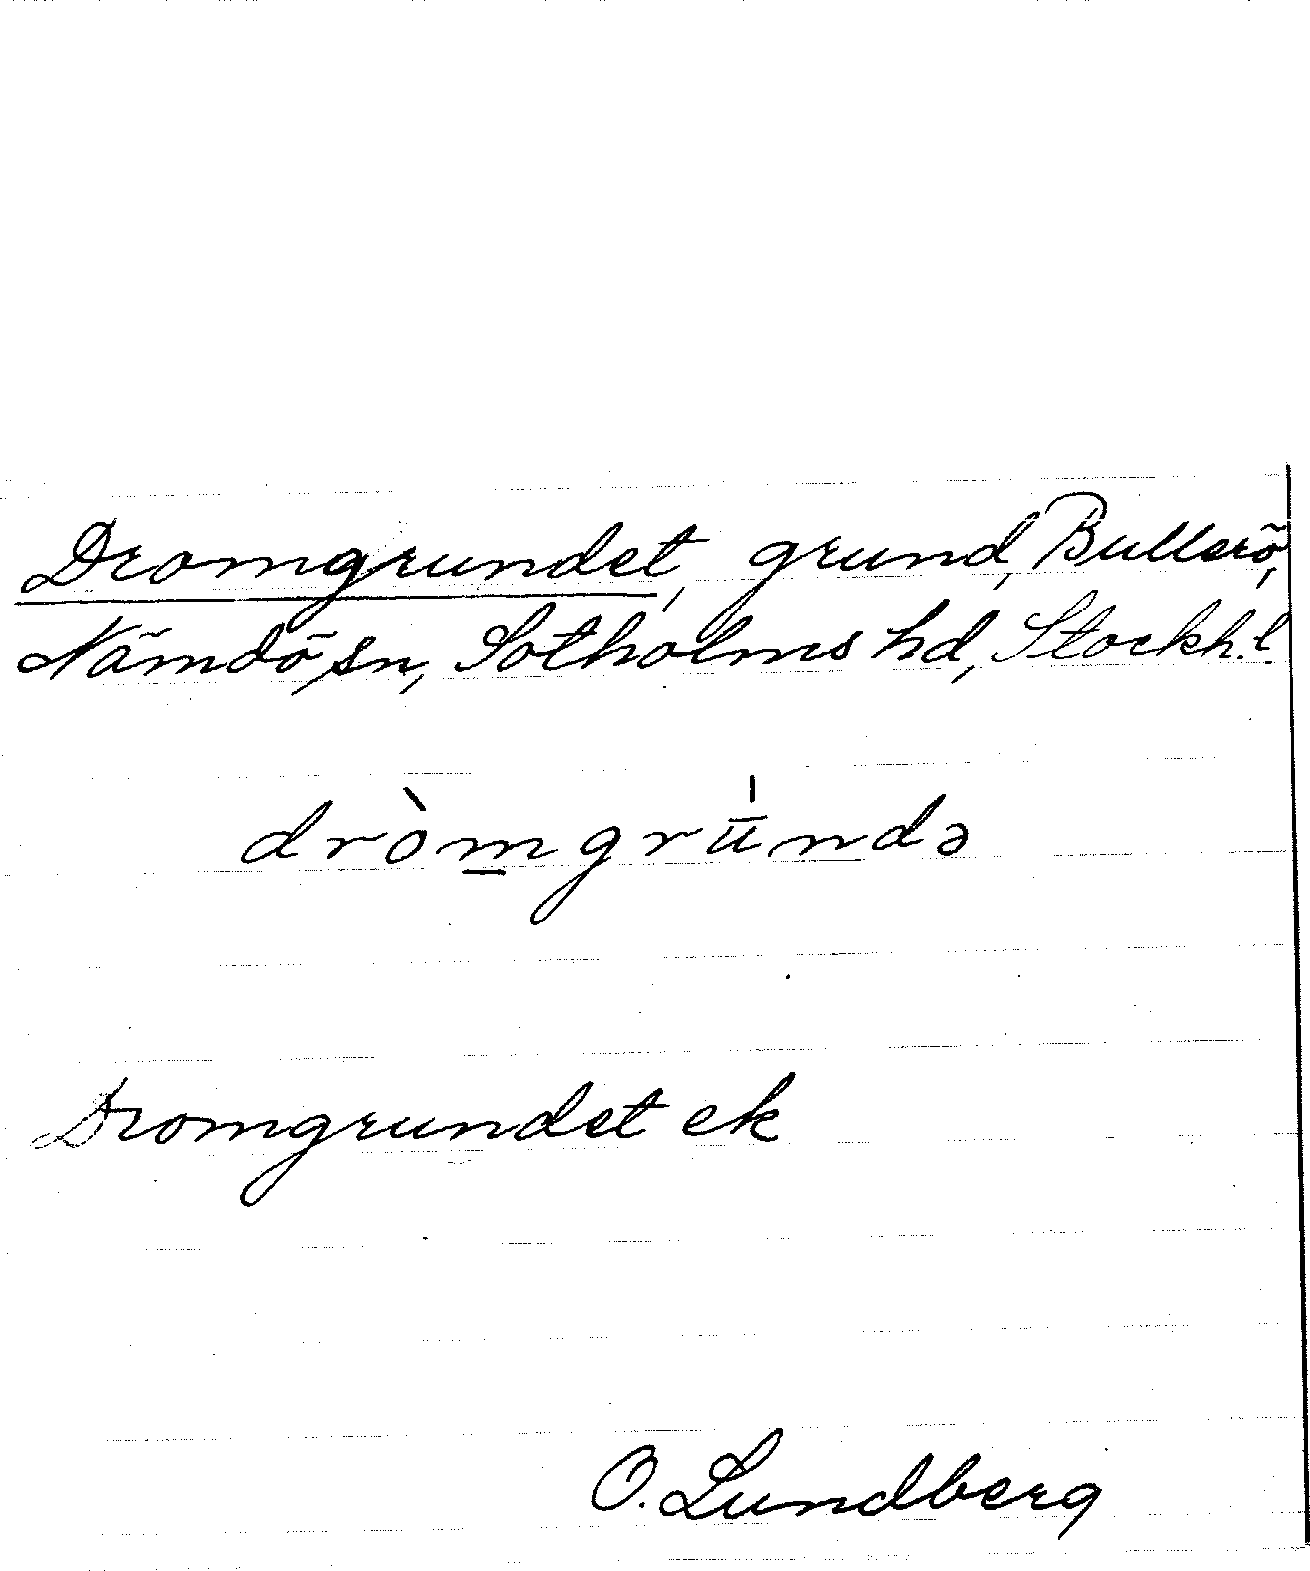 Dromgrundet, grund, Bullerö,
Nämdö sn, Sotholms hd, Stockh. l.
dròm̲grū́ndə
Dromgrundet ek
O. Lundberg